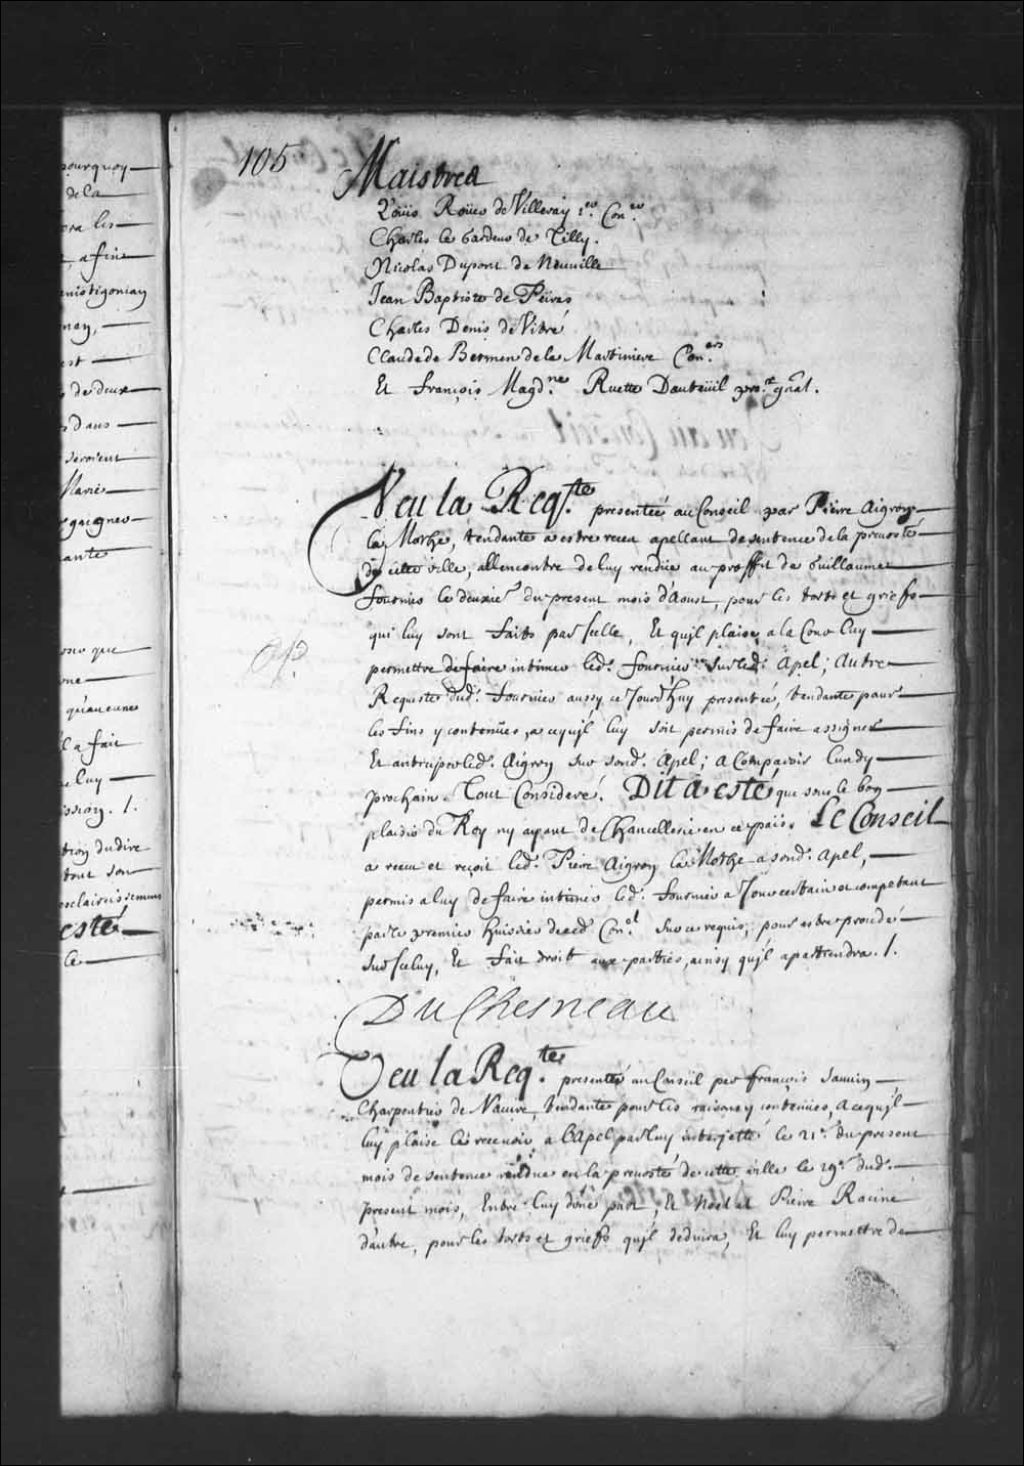 pourquoy
de la
pra les
, afine
nistigonian
nay,
est
de deux
dans
seroient
Marie
gaignes
ante
que
ne
qu'aucunes
l a fait
e luy
ission. /.
tion du dire
tout son
esclaircissemens
esté
Ce
105
Maistres
Loüis Roüer de Villeray 1er. Coner
Charles le Gardeur de Tilly.
Nicolas Dupont de Neuuille
Jean Baptiste de Peiras
Charles Denis de Vitré
Claude de Bermen de la Martiniere Coners
Et françois Magdne Ruette Dauteüil pror. gnal.
Veu la Reqte. presentée au Conseil par Pierre Aigron
la Mothe, tendante a estre receu apellant de sentence de la preuosté
de cette ville, allencontre de luy rendüe au proffit de Guillaume
fournier le deuxie du present mois d'Aoust, pour les torts et griefs
qui luy sont faits par Jcelle, Et qu'jl plaise a la Cour luy
permettre de faire intimer led. fournier sur led. Apel; Autre
Requeste dud. fournier aussy ce Jourd'huy presentée, tendante pour
les fins y contenües, a ce qu'jl luy soit permis de faire assigner
Et antruper led. Aigron sur sond. Apel; a Comparoir lundy
prochain. Tout Consideré. Dit a esté que sous le bon
plaisir du Roy n'y ayant de Chancellerie en ce païs. Le Conseil
a receu et reçoit led. Pierre Aigron la Mothe a sond. apel,
permis a luy de faire intimer led. fournier a Jour certain et competant
par le premier huissier de ced. Conel. sur ce requis, pour estre procedé
sur Jceluy, Et fait droit aux parties, ainsy qu'jl apartiendra. /.
DuChesneau
Veu la Reqte. presentée au Conseil par françois Jamin
Charpentier de Nauire, tendante pour les raisons y contenües, a ce qu'jl
luy plaise le receuoir a l'Apel par luy interjetté le 21e. du present
mois de sentence rendüe en la preuosté de cette ville le 19e. dud.
present mois, Entre luy d'une part, Et Noel et Pierre Racine
d'autre, pour les torts et griefs qu'jl deduira, Et luy permettre de